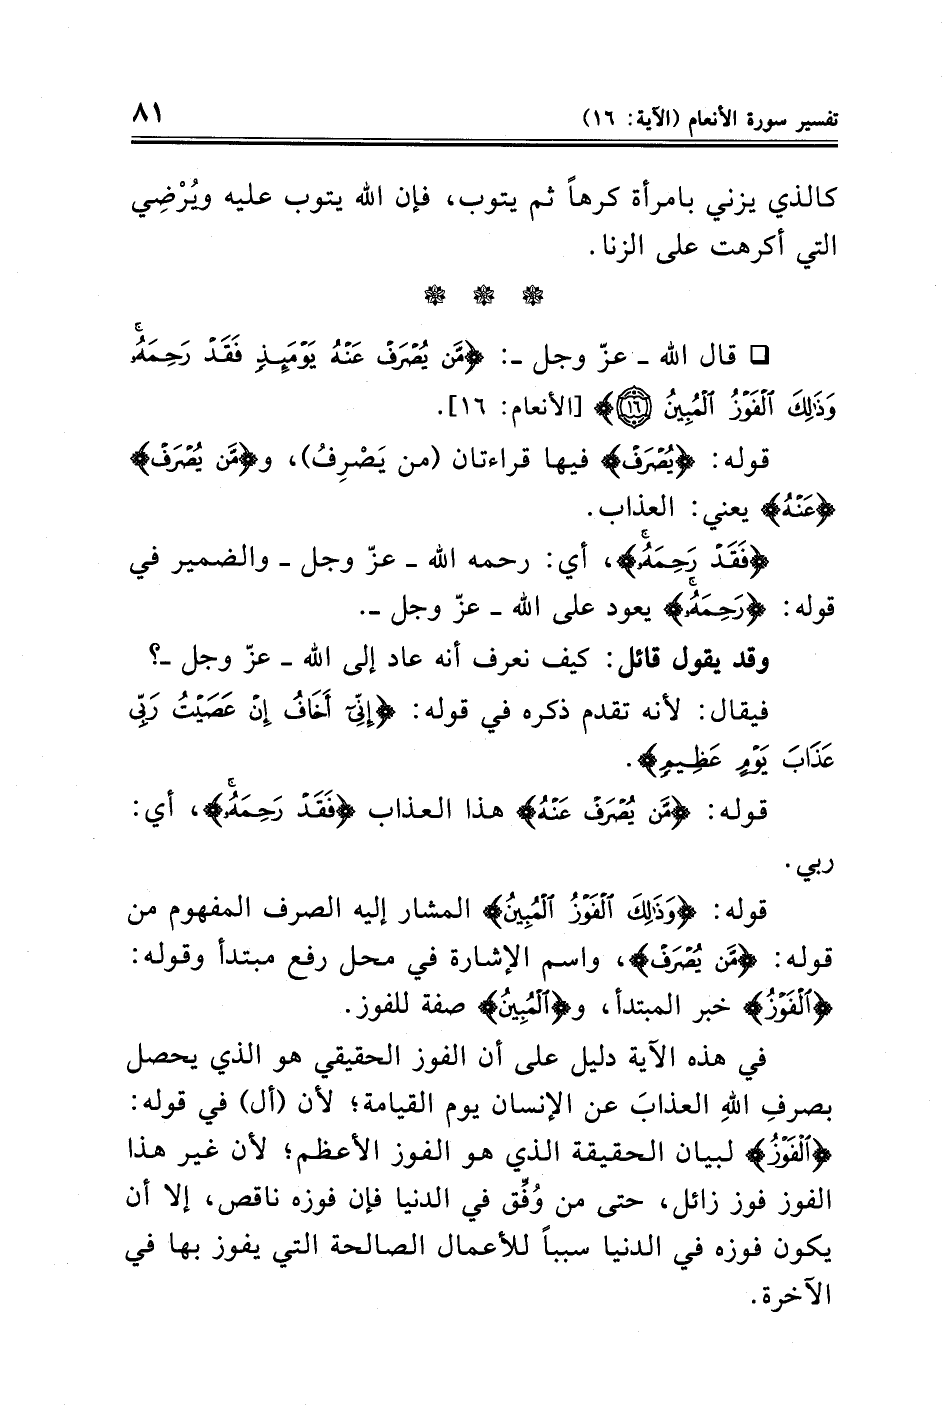 تفسير سورة الأنعام (الآية: ١٦) ٨١
كالذي يزني بامرأة كرهاً ثم يتوب، فإن الله يتوب عليه ويُرْضِي
التي أكرهت على الزنا.
❁ ❁ ❁
❑ قال الله ـ عزّ وجل ـ: ﴿مَّن يُصْرَفْ عَنْهُ يَوْمَئِذٍ فَقَدْ رَحِمَهُۥۚ
وَذَٰلِكَ ٱلْفَوْزُ ٱلْمُبِينُ ١٦﴾ [الأنعام: ١٦].
قوله: ﴿يُصْرَفْ﴾ فيها قراءتان (من يَصْرِفُ)، و﴿مَّن يُصْرَفْ﴾
﴿عَنْهُ﴾ يعني: العذاب.
﴿فَقَدْ رَحِمَهُۥۚ﴾، أي: رحمه الله ـ عزّ وجل ـ والضمير في
قوله: ﴿رَحِمَهُۥۚ﴾ يعود على الله ـ عزّ وجل ـ.
وقد يقول قائل: كيف نعرف أنه عاد إلى الله ـ عزّ وجل ـ؟
فيقال: لأنه تقدم ذكره في قوله: ﴿إِنِّىٓ أَخَافُ إِنْ عَصَيْتُ رَبِّى
عَذَابَ يَوْمٍ عَظِيمٍ﴾.
قوله: ﴿مَّن يُصْرَفْ عَنْهُ﴾ هذا العذاب ﴿فَقَدْ رَحِمَهُۥۚ﴾، أي:
ربي.
قوله: ﴿وَذَٰلِكَ ٱلْفَوْزُ ٱلْمُبِينُ﴾ المشار إليه الصرف المفهوم من
قوله: ﴿مَّن يُصْرَفْ﴾، واسم الإشارة في محل رفع مبتدأ وقوله:
﴿ٱلْفَوْزُ﴾ خبر المبتدأ، و﴿ٱلْمُبِينُ﴾ صفة للفوز.
في هذه الآية دليل على أن الفوز الحقيقي هو الذي يحصل
بصرفِ اللهِ العذابَ عن الإنسان يوم القيامة؛ لأن (أل) في قوله:
﴿ٱلْفَوْزُ﴾ لبيان الحقيقة الذي هو الفوز الأعظم؛ لأن غير هذا
الفوز فوز زائل، حتى من وُفِّق في الدنيا فإن فوزه ناقص، إلا أن
يكون فوزه في الدنيا سبباً للأعمال الصالحة التي يفوز بها في
الآخرة.